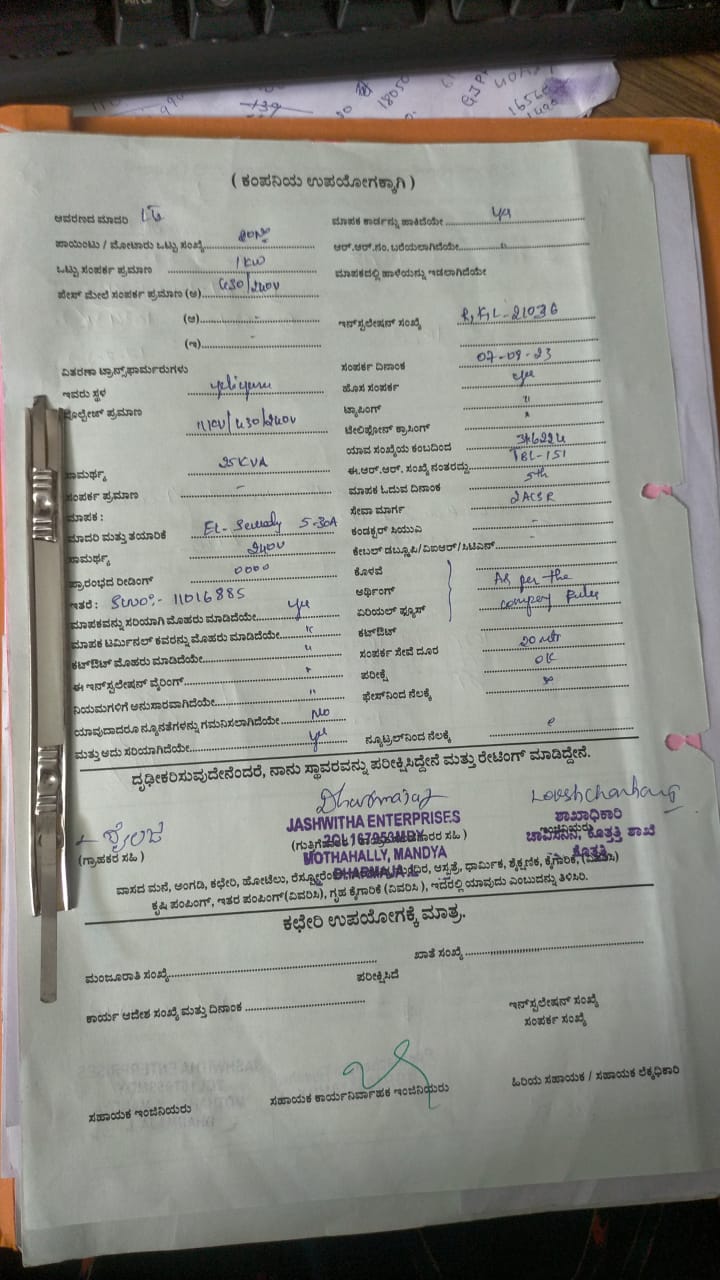 ( ಕಂಪನಿಯ ಉಪಯೋಗಕ್ಕಾಗಿ )
ಆವರಣದ ಮಾದರಿ LT
ಮಾಪಕ ಕಾರ್ಡನ್ನು ಹಾಕಿದೆಯೇ
ಪಾಯಿಂಟು / ಮೋಟಾರು ಒಟ್ಟು ಸಂಖ್ಯೆ
ಆರ್.ಆರ್.ನಂ. ಬರೆಯಲಾಗಿದೆಯೇ "
ಒಟ್ಟು ಸಂಪರ್ಕ ಪ್ರಮಾಣ 1 KW
ಮಾಪಕದಲ್ಲಿ ಹಾಳೆಯನ್ನು ಇಡಲಾಗಿದೆಯೇ
ಫೇಸ್ ಮೇಲೆ ಸಂಪರ್ಕ ಪ್ರಮಾಣ (ಅ) 430/240V
(ಆ) -
ಇನ್‌ಸ್ಟಲೇಷನ್ ಸಂಖ್ಯೆ 21036
(ಇ) -
ವಿತರಣಾ ಟ್ರಾನ್ಸ್‌ಫಾರ್ಮರುಗಳು
ಸಂಪರ್ಕ ದಿನಾಂಕ 07-09-23
ಇವರು ಸ್ಥಳ yeliyuru
ಹೊಸ ಸಂಪರ್ಕ yes
ವೋಲ್ಟೇಜ್ ಪ್ರಮಾಣ 430/240V
ಟ್ಯಾಪಿಂಗ್ "
ಟೆಲಿಫೋನ್ ಕ್ರಾಸಿಂಗ್
ಯಾವ ಸಂಖ್ಯೆಯ ಕಂಬದಿಂದ
ಸಾಮರ್ಥ್ಯ 25 KVA
ಈ.ಆರ್.ಆರ್. ಸಂಖ್ಯೆ ನಂತರದ್ದು TBL-151
ಸಂಪರ್ಕ ಪ್ರಮಾಣ -
ಮಾಪಕ ಓದುವ ದಿನಾಂಕ 5th
ಮಾಪಕ :
ಸೇವಾ ಮಾರ್ಗ 2ACSR
ಮಾದರಿ ಮತ್ತು ತಯಾರಿಕೆ 5-30A
ಕಂಡಕ್ಟರ್ ಸಿಯುಎ -
ಸಾಮರ್ಥ್ಯ 240V
ಕೇಬಲ್ ಡಬ್ಲ್ಯೂಪಿ/ವಿಐಆರ್/ಸಿಟಿಎಸ್ -
ಪ್ರಾರಂಭದ ರೀಡಿಂಗ್ 0000
ಕೊಳವೆ
ಇತರೆ : Slno:- 11016885
ಅರ್ಥಿಂಗ್ As per the
ಮಾಪಕವನ್ನು ಸರಿಯಾಗಿ ಮೊಹರು ಮಾಡಿದೆಯೇ yes
ಏರಿಯಲ್ ಫ್ಯೂಸ್ company Rules
ಮಾಪಕ ಟರ್ಮಿನಲ್ ಕವರನ್ನು ಮೊಹರು ಮಾಡಿದೆಯೇ "
ಕಟ್‌ಔಟ್
ಕಟ್‌ಔಟ್ ಮೊಹರು ಮಾಡಿದೆಯೇ "
ಸಂಪರ್ಕ ಸೇವೆ ದೂರ 20 mtr
ಈ ಇನ್‌ಸ್ಟಲೇಷನ್ ವೈರಿಂಗ್
ಪರೀಕ್ಷೆ OK
ನಿಯಮಗಳಿಗೆ ಅನುಸಾರವಾಗಿದೆಯೇ "
ಫೇಸ್‌ನಿಂದ ನೆಲಕ್ಕೆ
ಯಾವುದಾದರೂ ನ್ಯೂನತೆಗಳನ್ನು ಗಮನಿಸಲಾಗಿದೆಯೇ No
ಮತ್ತು ಅದು ಸರಿಯಾಗಿದೆಯೇ yes
ನ್ಯೂಟ್ರಲ್‌ನಿಂದ ನೆಲಕ್ಕೆ
ದೃಢೀಕರಿಸುವುದೇನೆಂದರೆ, ನಾನು ಸ್ಥಾವರವನ್ನು ಪರೀಕ್ಷಿಸಿದ್ದೇನೆ ಮತ್ತು ರೇಟಿಂಗ್ ಮಾಡಿದ್ದೇನೆ.
Dharmaraj
JASHWITHA ENTERPRISES
ಶಾಖಾಧಿಕಾರಿ
(ಗ್ರಾಹಕರ ಸಹಿ )
ಕೊತ್ತತ್ತಿ ಶಾಖೆ
MOTHAHALLY, MANDYA
ಕೊತ್ತತ್ತಿ
ವಾಸದ ಮನೆ, ಅಂಗಡಿ, ಕಛೇರಿ, ಹೋಟೆಲು, ಆಸ್ಪತ್ರೆ, ಧಾರ್ಮಿಕ, ಶೈಕ್ಷಣಿಕ, ಕೈಗಾರಿಕೆ, (ವಿವರಿಸಿ)
ಕೃಷಿ ಪಂಪಿಂಗ್, ಇತರ ಪಂಪಿಂಗ್(ವಿವರಿಸಿ), ಗೃಹ ಕೈಗಾರಿಕೆ (ವಿವರಿಸಿ ), ಇದರಲ್ಲಿ ಯಾವುದು ಎಂಬುದನ್ನು ತಿಳಿಸಿರಿ.
ಕಛೇರಿ ಉಪಯೋಗಕ್ಕೆ ಮಾತ್ರ.
ಮಂಜೂರಾತಿ ಸಂಖ್ಯೆ
ಖಾತೆ ಸಂಖ್ಯೆ
ಪರೀಕ್ಷಿಸಿದೆ
ಕಾರ್ಯ ಆದೇಶ ಸಂಖ್ಯೆ ಮತ್ತು ದಿನಾಂಕ
ಇನ್‌ಸ್ಟಲೇಷನ್ ಸಂಖ್ಯೆ
ಸಂಪರ್ಕ ಸಂಖ್ಯೆ
ಸಹಾಯಕ ಇಂಜಿನಿಯರು
ಸಹಾಯಕ ಕಾರ್ಯನಿರ್ವಾಹಕ ಇಂಜಿನಿಯರು
ಹಿರಿಯ ಸಹಾಯಕ / ಸಹಾಯಕ ಲೆಕ್ಕಧಿಕಾರಿ